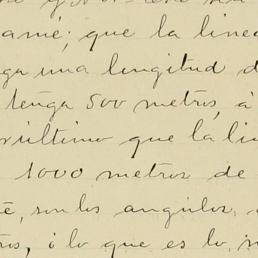 amé; que la linea
ga una longitud d
tenga 500 metros, á
rúltimo que la li
1000 metros de
é, son los angulos
os, ó lo que es lo m